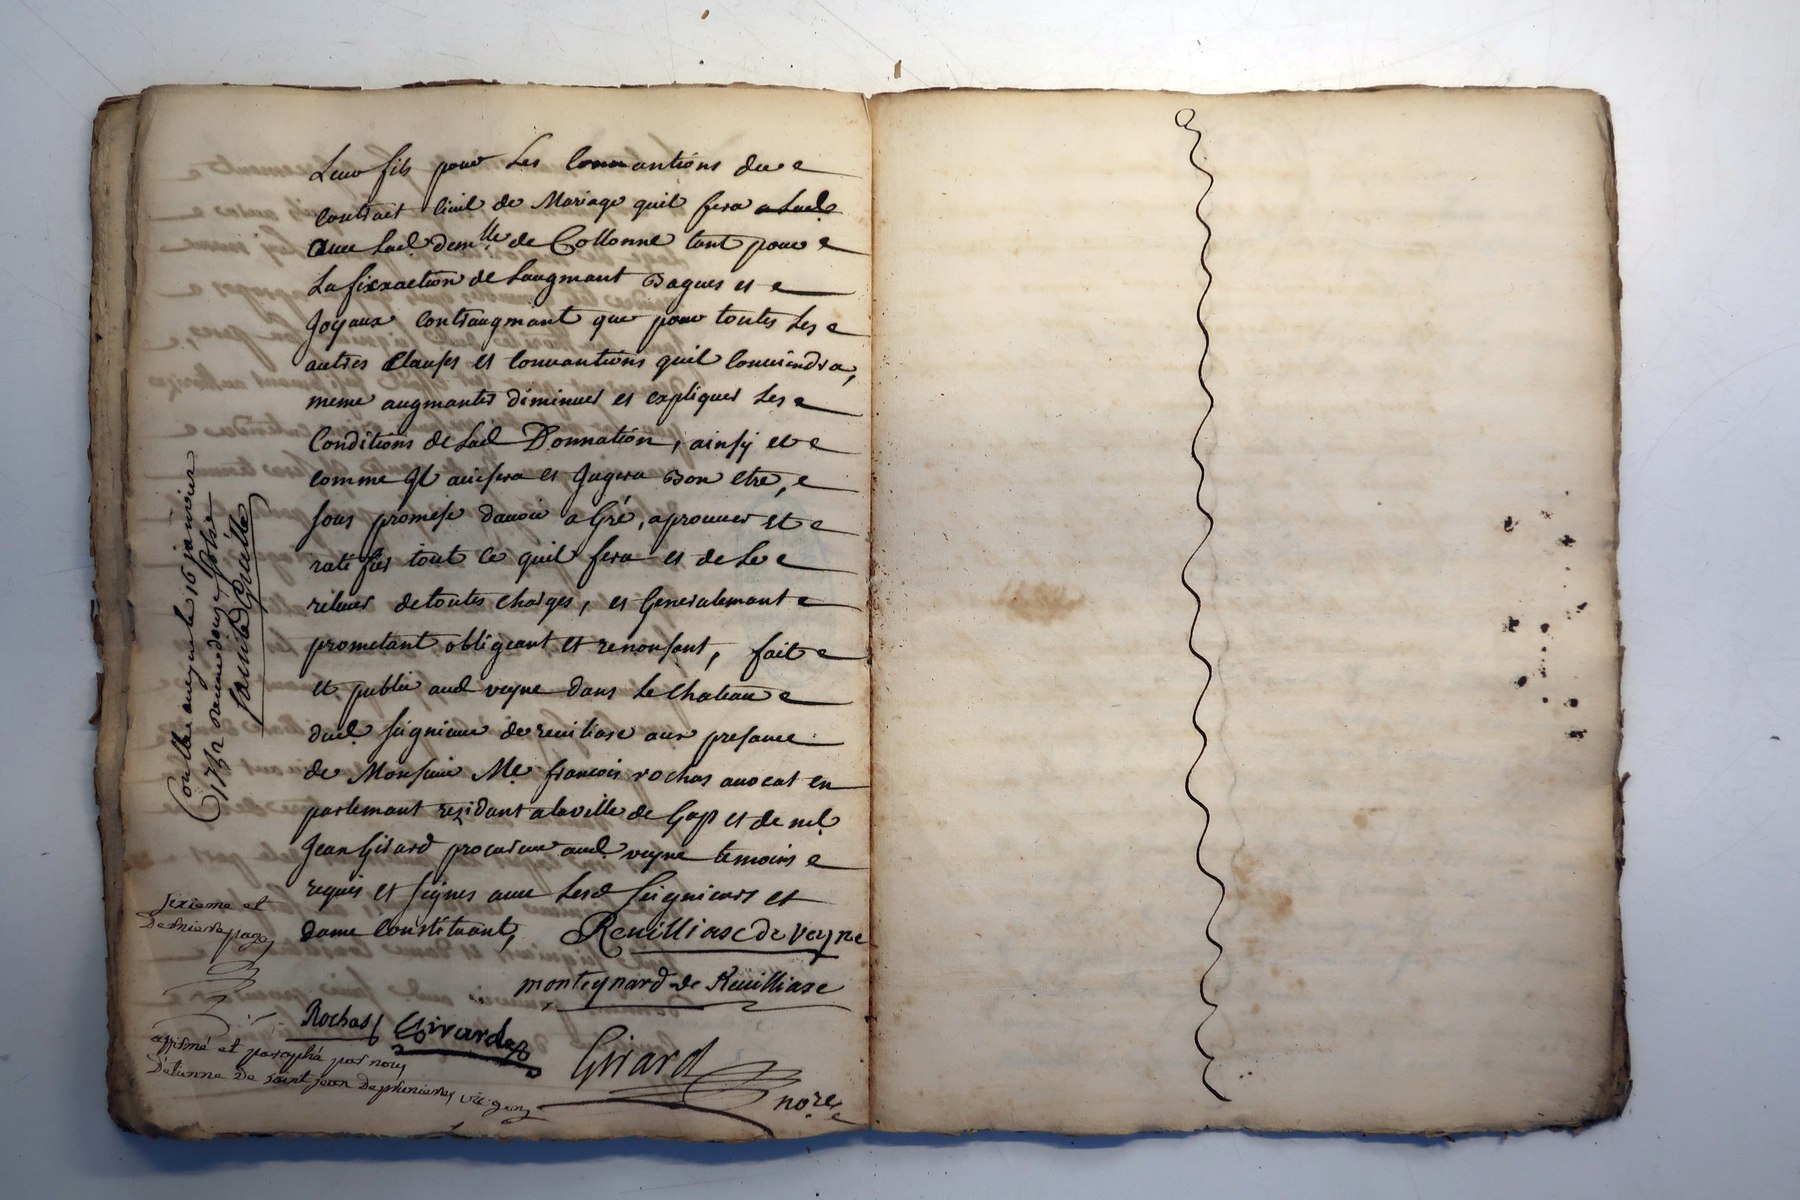 Leur fils pour Les Conuantions du
Contract Ciuil de Mariage quil fera a Lad.
auec Lad. demlle de Collonne tant pour
La fixxaction de Laugmant Bagues et
Joyaux Contraugmant que pour toutes Les
autres Clauses et Conuantions quil Conuiendra,
meme augmanter diminuer et expliquer Les
Conditions de Lad. Donnation, ainsy et
Comme Jl auisera et Jugera Bon etre,
sous promese dauoir a Gré, aprouuer et
ratifier tout ce quil fera et de Le
releuer de toutes charges, et Generalemant
prometant obligeant et renonsant, fait
et publié aud. veyne dans Le Chateau
dud. seignieur de reuiliasc aux presance
de Monsieur Me. francois rochas auocat en
parlemant rezidant a la ville de Gap et de me.
Jean Girard procureur aud. veyne temoins
requis et signes auec Lesd. Seignieurs et
dame Constituant, Reuilliasc de Veyne
monteynard de Reuilliasc
Rochas Girard
Girard
nore.
Controllé a veyne le 16 janvier
1752 receu douze sols
sixieme et
Derniere page
affirmé et paraphé par nous
Détienne De Saint Jean De prunieres vic. gen.